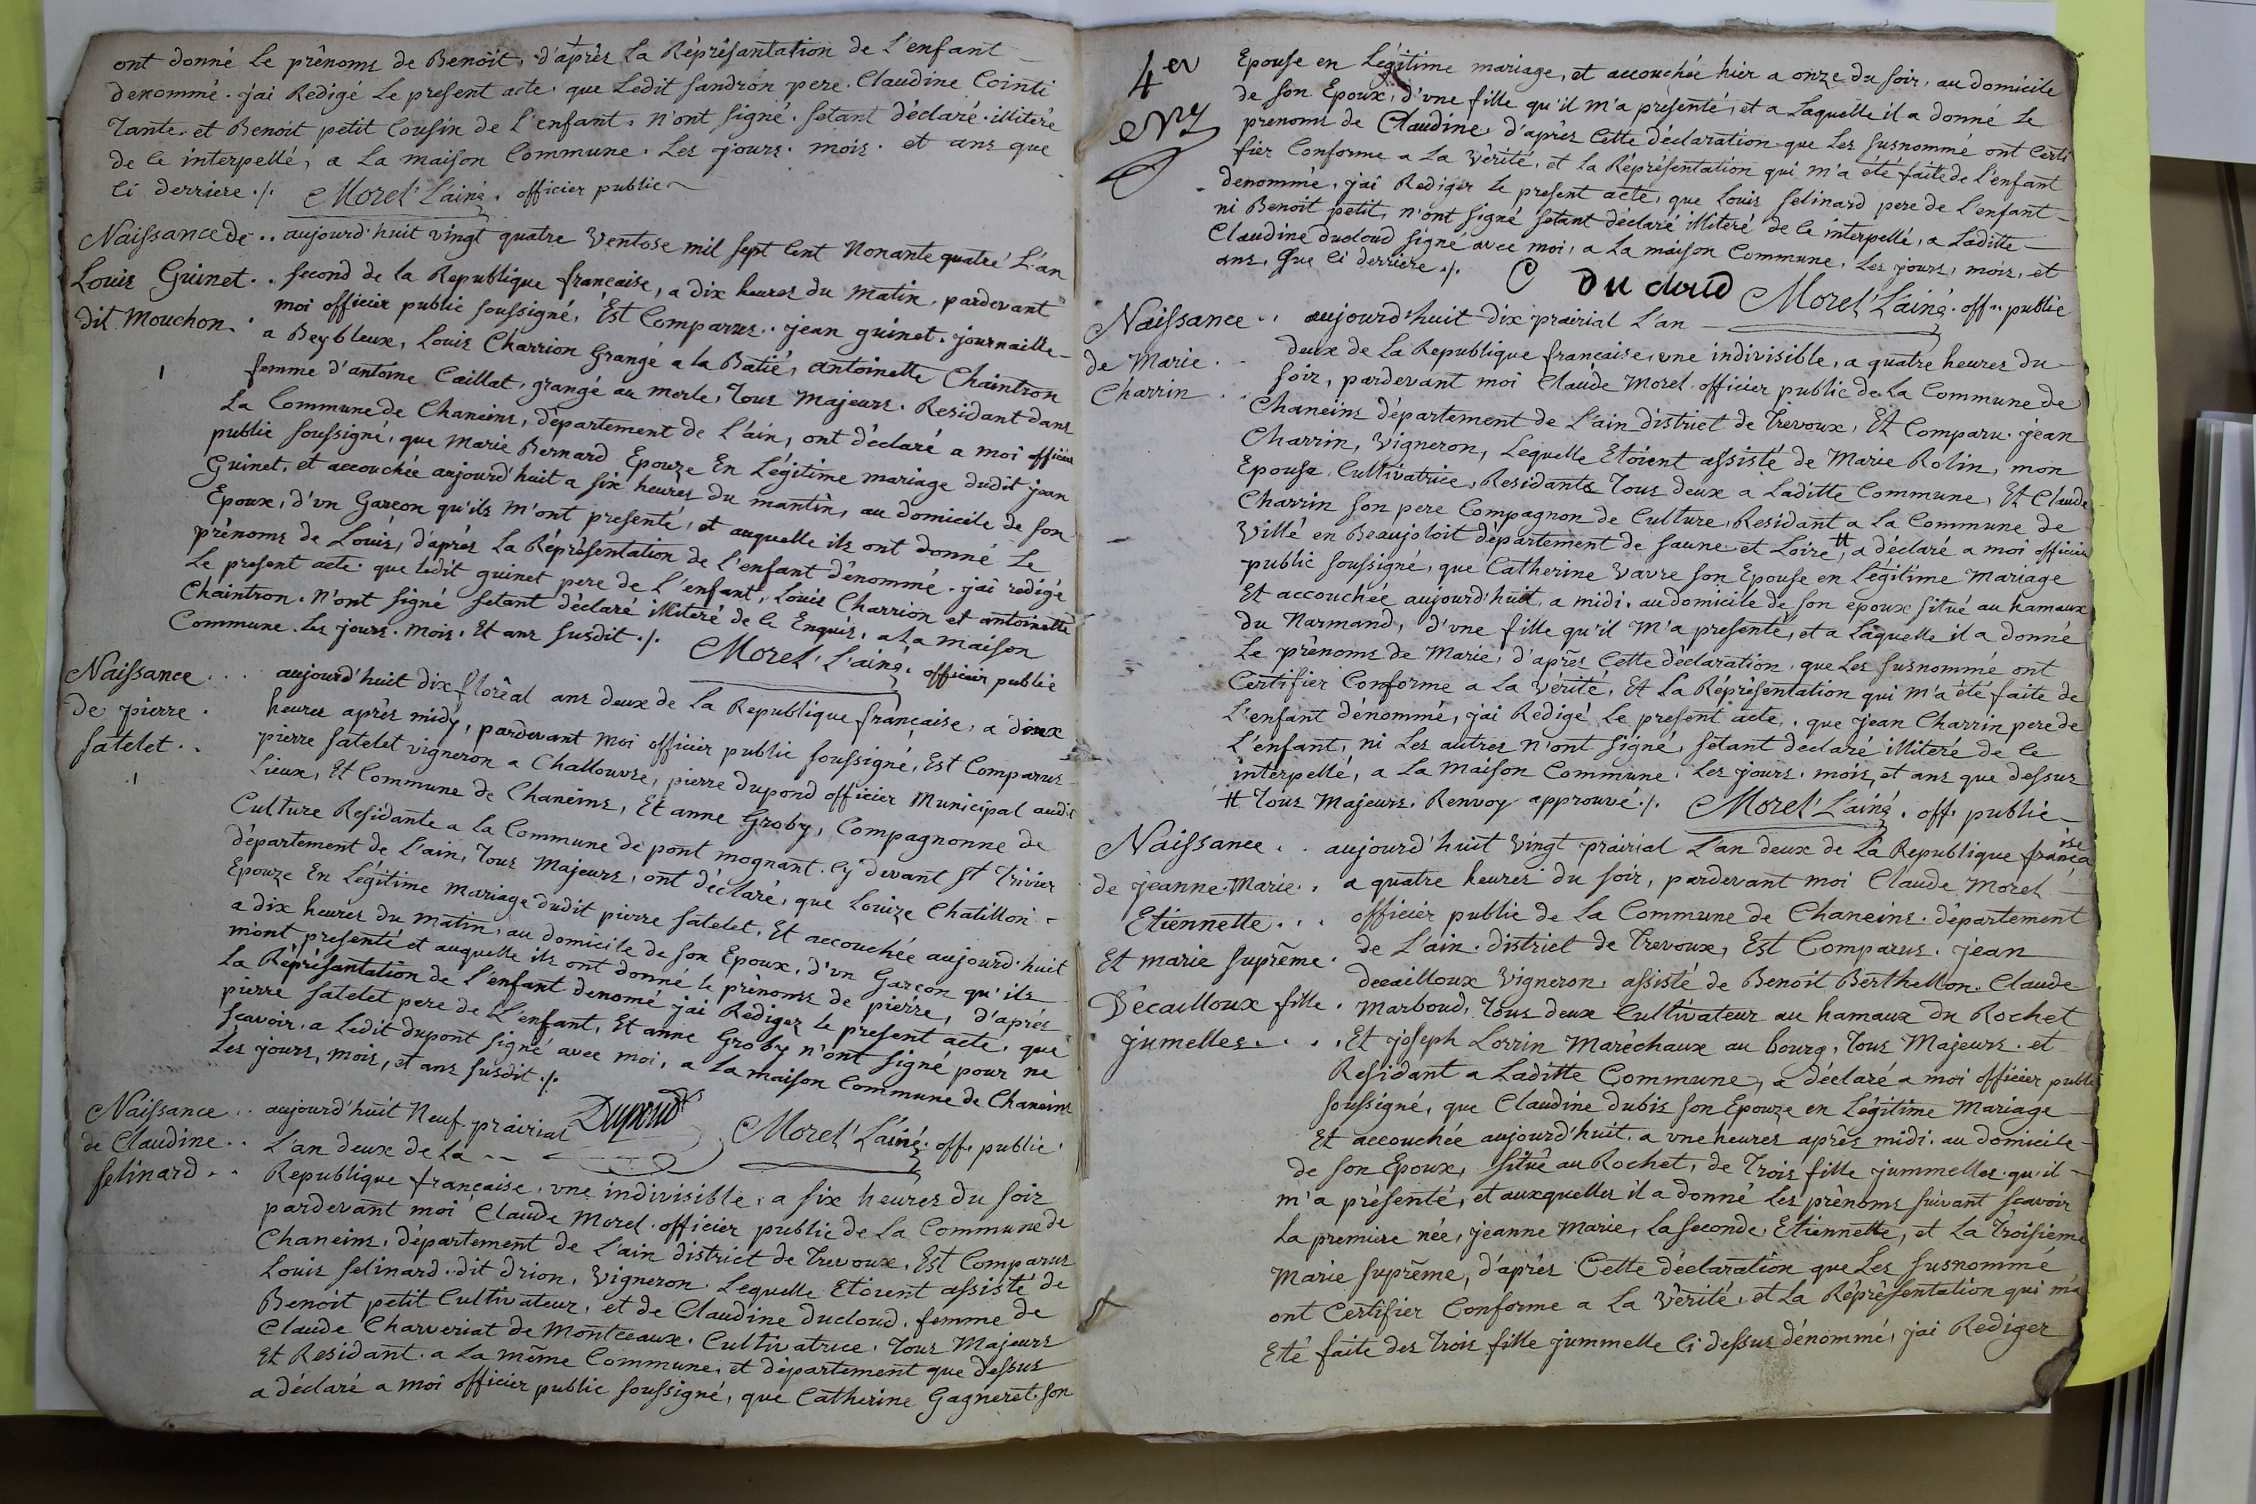 ont donné le prênoms de Benoit, d'aprês la Réprêsantation de L'enfant
denommé. jai Redigé Le present acte. que Ledit sandron pere. Claudine Cointi
Tante. et Benoit petit Cousin de L'enfant. n'ont signé. setant déclaré. illiteré
de ce interpellé, a La maison Commune. Les jours. mois. et ans que
ci derriere ./. Morel L'ainé. officier public
Naissance de .. aujourd'huit vingt quatre Ventose mil sept Cent Nonante quatre L'an
Louis Guinet .. second de la Republique française, a dix heures du Matin. pardevant
dit Mouchon . moi officier public soussigné, Est Comparus. jean guinet. journaillé
a Beybleux, Louis Charrion Grangé a la Batié, antoinette Chaintron
femme d'antoine Caillat, grangé au Merle, Tous Majeurs. Residant dans
La Commune de Chaneins, département de L'ain, ont déclaré a moi officier
public soussigné, que Marie Bernard Epouze En Légitime mariage dudit jean
Guinet, ét accouchée aujourd'huit a six heures du mantin, au domicile de son
Epoux, d'un Garçon qu'ils m'ont presenté, et auquelle ils ont donné Le
prénoms de Louis, d'aprés La Réprésentation de L'enfant dénommé. jai redigé
Le present acte. que ledit guinet pere de L'enfant, Louis Charrion et antoinette
Chaintron. n'ont signé setant déclaré illiteré de ce Enquis, a La maison
Commune. Les jours. mois. Et ans susdit ./. Morel L'ainé. officier public
Naissance ... aujourd'huit dix florêal ans deux de La Republique française, a deux
de pierre . heures aprês midy, pardevant moi officier public soussigné, Est Comparus
satelet .. pierre satelet vigneron a Challouvre, pierre dupond officier Municipal audit
Lieux, Et Commune de Chaneins, Et anne Groby, Compagnonne de
Culture Residante a la Commune de pont mognant. Cy devant st Trivier
département de L'ain, Tous Majeurs, ont déclaré, que Louize Chatillon
Epouze En Légitime Mariage dudit pierre satelet, Et accouchée aujourd'huit
a dix heures du matin, au domicile de son Epoux, d'un Garçon qu'ils
m'ont presenté et auquelle ils ont donné le prênoms de pierre, d'aprés
La Réprêsantation de L'enfant denomé jai Rediger le present acte. que
pierre satelet pere de L'enfant, Et anne Groby n'ont signé pour ne
scavoir. a Ledit dupont signé avec moi, a La maison Commune de Chaneins
Les jours, mois, et ans susdit ./.
Dupond Morel L'ainé. off. public
Naissance .. aujourd'huit Neuf prairial
de Claudine .. L'an deux de La
selinard .. Republique française. une indivisible, a six heures du soir
pardevant moi Claude Morel. officier public de La Commune de
Chaneins, département de L'ain district de Trevoux, Est Comparus
Louis selinard. dit drion, Vigneron. Lequelle Etoient assisté de
Benoit petit Cultivateur, et de Claudine ducloud. femme de
Claude Charveriat de Montceaux. Cultivatrice. Tous Majeurs
Et Residant. a La même Commune, et département que dessus
a déclaré a moi officier public soussigné, que Catherine Gagneret. son
4er
Epouse en Légitime mariage, et accouchée hier a onze du soir, au domicile
de son Epoux, d'une fille qu'il m'a présenté, et a Laquelle il a donné Le
prenoms de Claudine, d'aprês Cette déclaration que Les susnommé ont Certi
fier Conforme a La vêrité, et la Réprésentation qui m'a été faite de L'enfant
denommé, jai Rediger le present acte, que Louis selinard pere de L'enfant
ni Benoit petit, n'ont signé setant déclaré illiteré de ce interpellé, a Laditte
Claudine ducloud signé avec moi, a La maison Commune, Les jours, mois, et
ans, que ci derriere ./. C du cloud Morel L'ainé. off. public
Naissance .. aujourd'huit dix prairial L'an
de Marie .. deux de La Republique française, une indivisible, a quatre heures du
Charrin .. soir, pardevant moi Claude Morel. officier public de La Commune de
Chaneins département de L'ain district de Trevoux, Et Comparu. jean
Charrin, Vigneron, Lequelle Etoient assisté de Marie Rolin, mon
Epouse Cultivatrice, Residants Tous deux a Laditte Commune, Et Claude
Charrin son pere Compagnon de Culture, Residant a La Commune de
Villé en Beaujoloit département de saune et Loire #, a déclaré a moi officier
public soussigné, que Catherine Vavre son Epouse en Légitime Mariage
Et accouchée aujourd'huit, a midi. au domicile de son epoux situé au hamaux
du Narmand, d'une fille qu'il m'a presenté, et a Laquelle il a donné
Le prênoms de Marie, d'aprês Cette déclaration. que Les susnommé ont
Certifier Conforme a La vérité, Et La Réprésentation qui m'a été faite de
L'enfant dénommé, jai Redigé Le present acte. que jean Charrin pere de
L'enfant, ni Les autres n'ont signé, setant declaré illiteré de ce
interpellé, a La maison Commune. Les jours. mois, et ans que dessus
# Tous Majeurs. Renvoy approuvé ./. Morel L'ainé. off. public
Naissance .. aujourd'huit vingt prairial L'an deux de La Republique française
de jeanne Marie .. a quatre heures du soir, pardevant moi Claude Morel
Etiennette ... officier public de La Commune de Chaneins. département
Et marie suprême . de L'ain. district de Trevoux, Est Comparus. jean
Decailloux fille . decailloux Vigneron, assisté de Benoit Berthellon. Claude
jumelles .... Marboud, Tous deux Cultivateur au hamaux du Rochet
Et joseph Lorrin Maréchaux au bourg, Tous Majeurs. et
Residant a Laditte Commune, a déclaré a moi officier public
soussigné, que Claudine dubis son Epouze en Légitime Mariage
Et accouchée aujourd'huit. a une heures aprês midi. au domicile
de son Epoux, situé au Rochet, de Trois fille jummelles. qu'il
m'a présenté, et auxquelles il a donné Les prênoms suivant scavoir
La premiere née, jeanne Marie, La seconde, Etiennette, et La Troisieme
Marie suprême, d'aprés Cette déclaration que Les susnommé
ont Certifier Conforme a La vérité, et La Réprésentation qui m'a
Eté faite des Trois fille jummelle ci dessus dénommé, jai Rediger